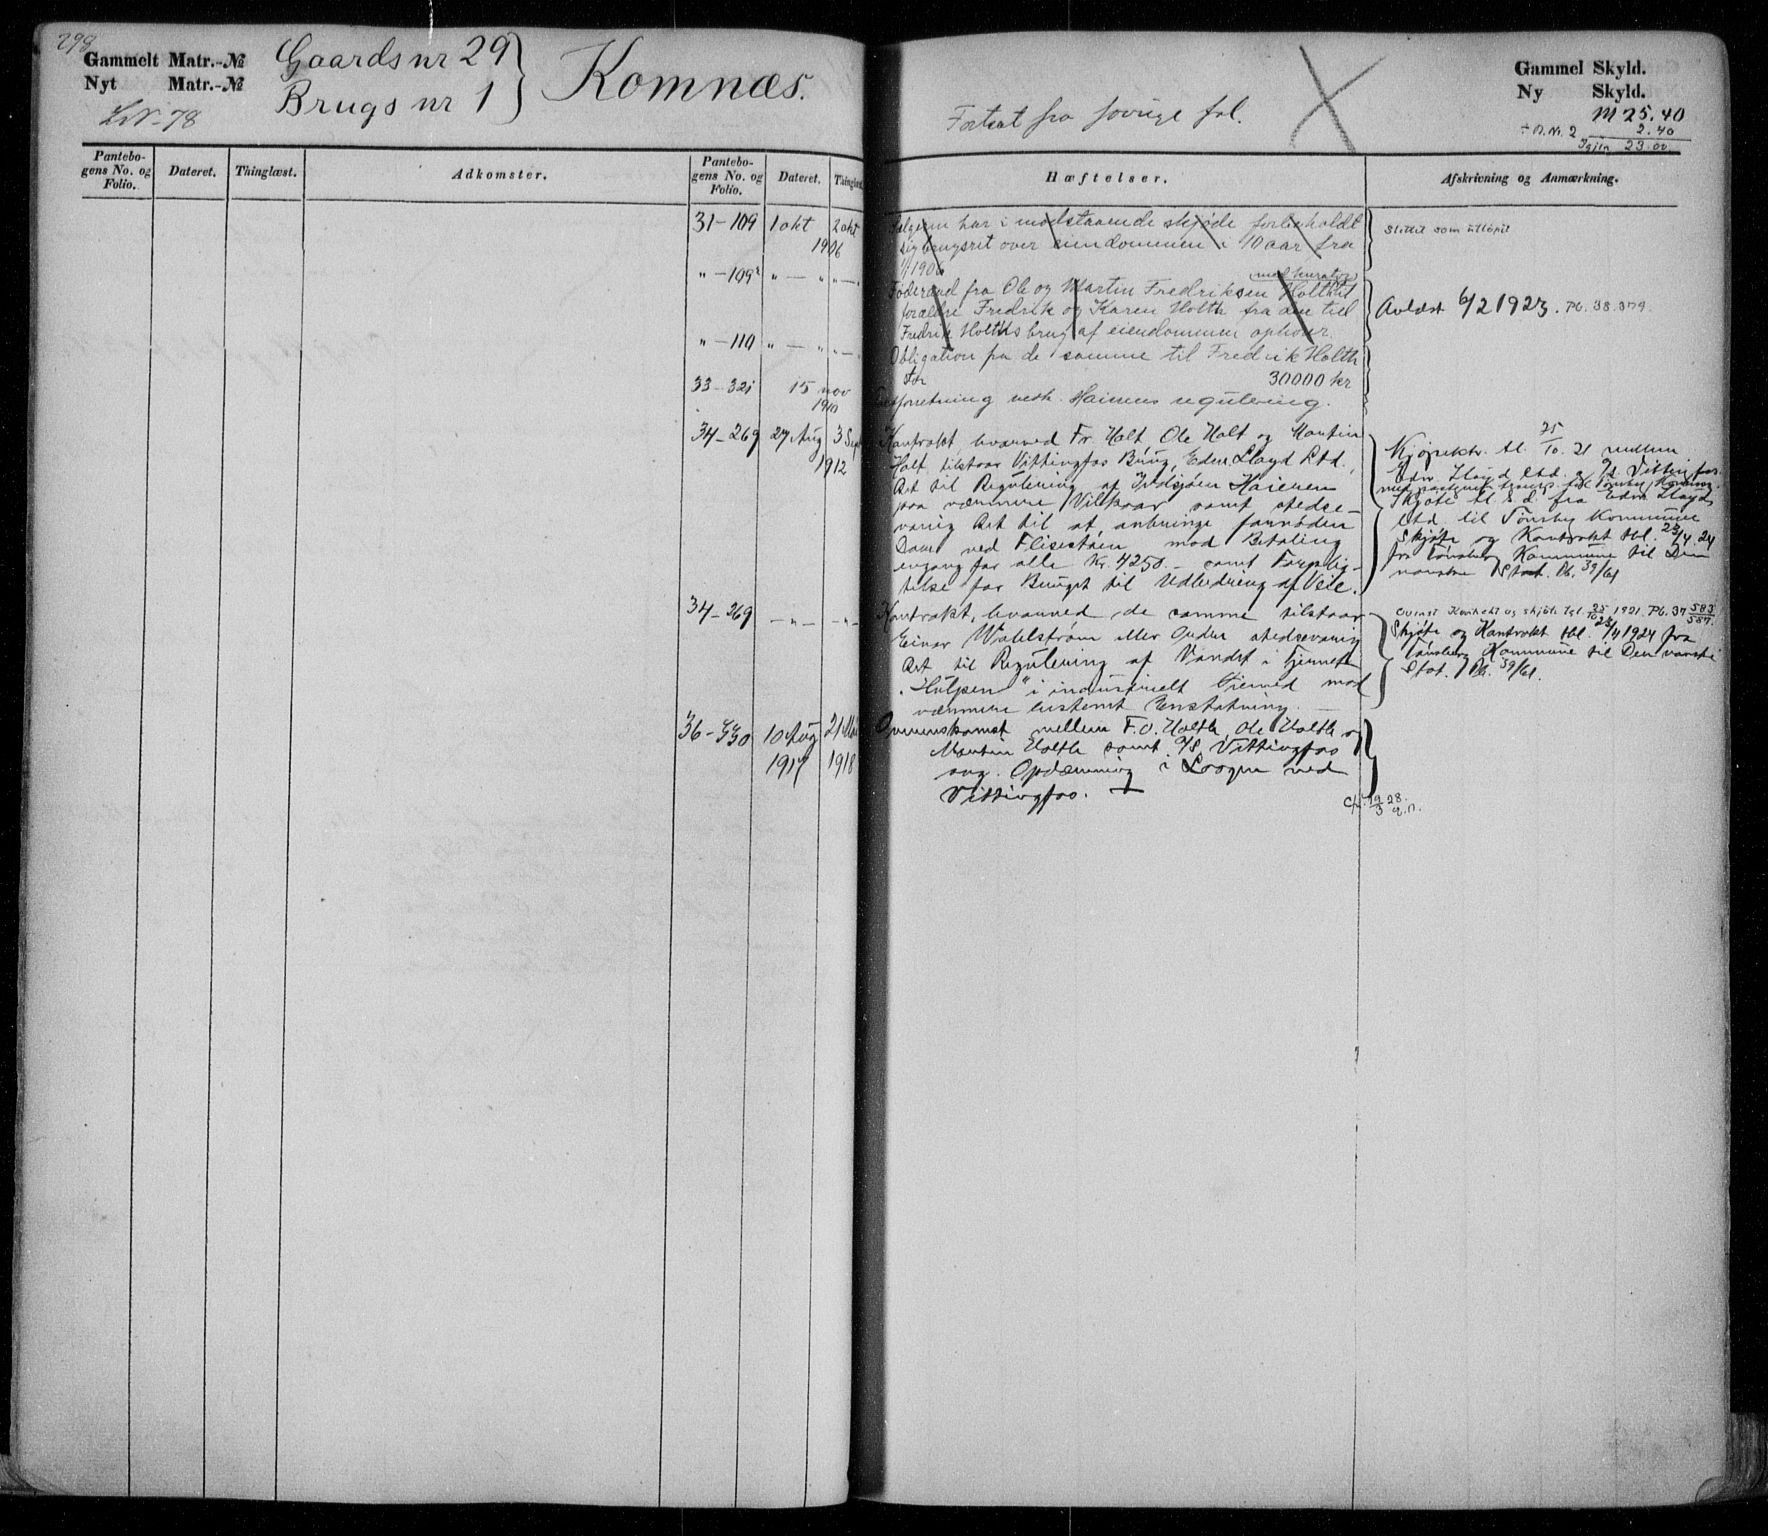 298
Gammelt Matr.-№ Gaardsnr 29
Nyt Matr.-№ Brugsnr 1
Komnæs.
LN-78
Fortsat fra forrige fol.
Gammel Skyld.
Ny Skyld.
M 25.40
÷ B.Nr. 2 2.40
Igjen 23.00
Pantebogens No. og Folio.
Dateret.
Thinglæst.
Adkomster.
Pantebogens No. og Folio.
Dateret.
Thinglæst
Hæftelser.
Afskrivning og Anmærkning.
31-109 1 okt 2 okt 1906
Sælgeren har i modstaaende skjøde forbeholdt
sig brugsret over eiendommen i 10 aar fra
1/1 1906
Slettet som utløpet
"-109² " — " " —
Føderaad fra Ole og Martin Fredriksen Holth til
forældre Fredrik og Karen Holth fra den tid
Fredrik Holths brug af eiendommen ophører
Avlæst 6/2 1923. Pb. 38.379.
"-110 " — " " —
Obligation fra de samme til Fredrik Holth
for 30000 kr
33-321 15 nov 1910
regulering.
34-269 27 Aug 3 Sept 1912
Kontrakt, hvorved Fr. Holt, Ole Holt og Martin
Holt tilstaar Vittingfos Brug, Edw. Lloyd Ltd.,
Ret til Regulering af
paa nærmere Vilkaar samt stedse-
varig Ret til at anbringe fornøden
Dam ved mod Betaling
engang for alle Kr. 4250.- samt Forplig-
telse for Bruget til Udbedring af Veie.
Kjøpektr. tl. 25/10 21 mellem
Edw Lloyd Ltd. og A/S Vittingfos.
Skjøte tl. s. d. fra Edw Lloyd
Ltd. til Tønsberg Kommune
Skjøte og Kontrakt tbl. 23/4 24
fra Tønsberg Kommune til Den
norske Stat. Pb. 39/61
34-269 — " — — " —
Kontrakt, hvorved de samme tilstaar
Einar Wahlstrøm eller Order stedsevarig
Ret til Regulering af Vandet i Tjernet
"Hulpen" i industrielt Øiemed mod
nærmere bestemt Erstatning. —
Overført Kontrakt og skjøte tgl. 25/10 1921. Pb. 37 583/587.
Skjøte og Kontrakt tbl. 23/4 1924 fra
Tønsberg Kommune til Den norske
Stat. Pb. 39/61.
36-530 10 Aug 1917 21 Mai 1918
Overenskomst mellem F.O. Holth, Ole Holth og
Martin Holth samt A/S Vittingfos
ang. Opdæmning i Laagen ved
Vittingfos.
19/3 28.